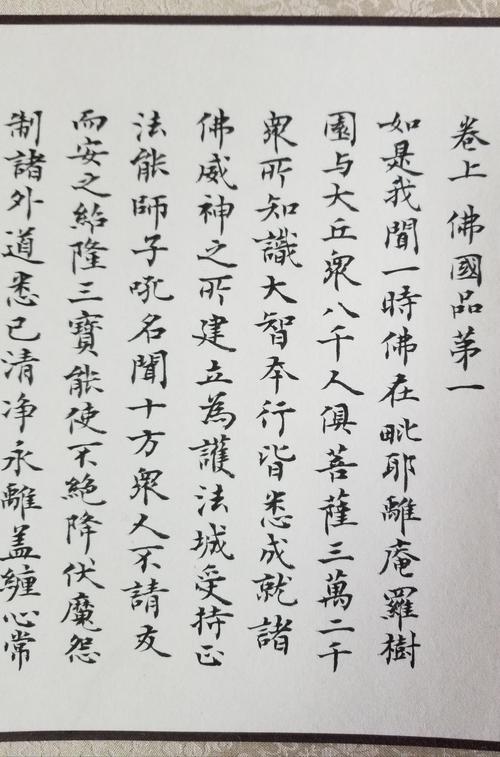 卷上 佛國品第一
如是我聞一時佛在毗耶離庵羅樹
園与大丘眾八千人俱菩薩三萬二千
眾所知識大智本行皆悉成就諸
佛威神之所建立為護法城受持正
法能師子吼名聞十方眾人不請友
而安之給隆三寶能使不絕降伏魔怨
制諸外道悉已清净永離盖纏心常